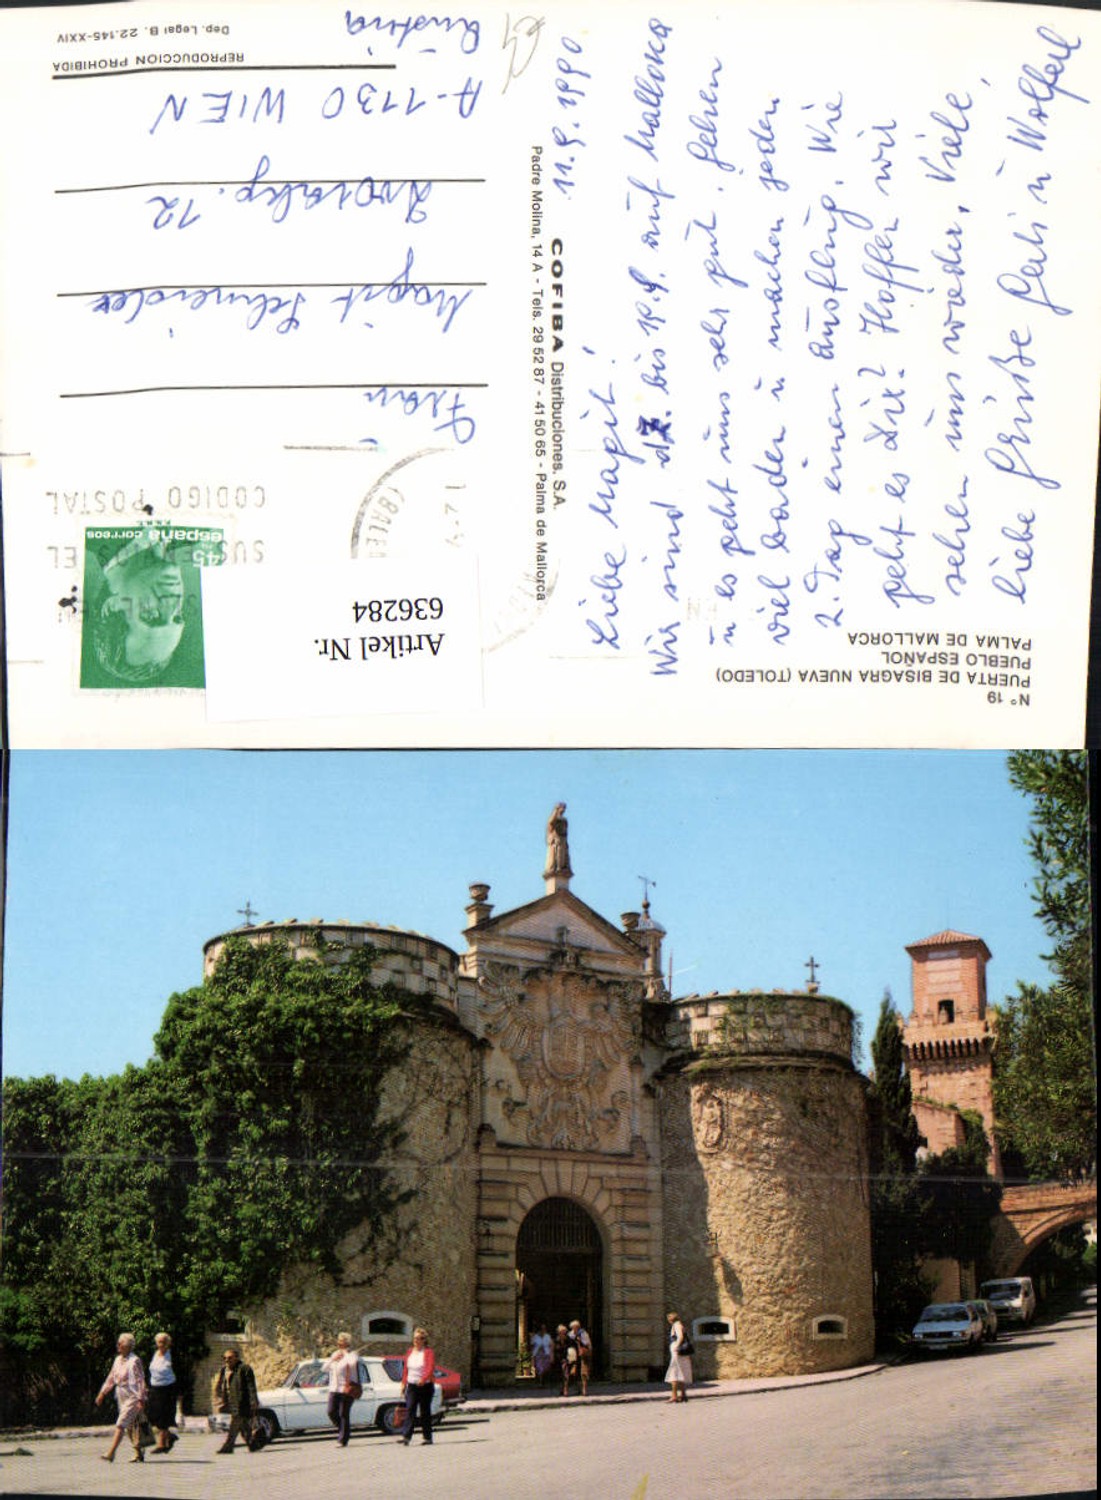 Nº 19
PUERTA DE BISAGRA NUEVA (TOLEDO)
PUEBLO ESPAÑOL
PALMA DE MALLORCA
11.9.1990
Liebe Magit!
Wir sind bis 19.9. auf Mallorca
u es geht uns sehr gut. Gehen
viel baden u machen jeden
2. Tag einen Ausflug. Wie
geht es Dir? Hoffen wir
sehen uns wieder. Viele,
liebe Grüße Gerli u Wolferl
COFIBA Distribuciones. S.A.
Padre Molina, 14 A - Tels. 29 52 87 - 41 50 65 - Palma de Mallorca
Artikel Nr.
636284
45
españa correos
CODIGO POSTAL
Frau
Magit Schneider
12
A-1130 WIEN
Austria
REPRODUCCION PROHIBIDA
Dep. Legal B. 22.145-XXIV